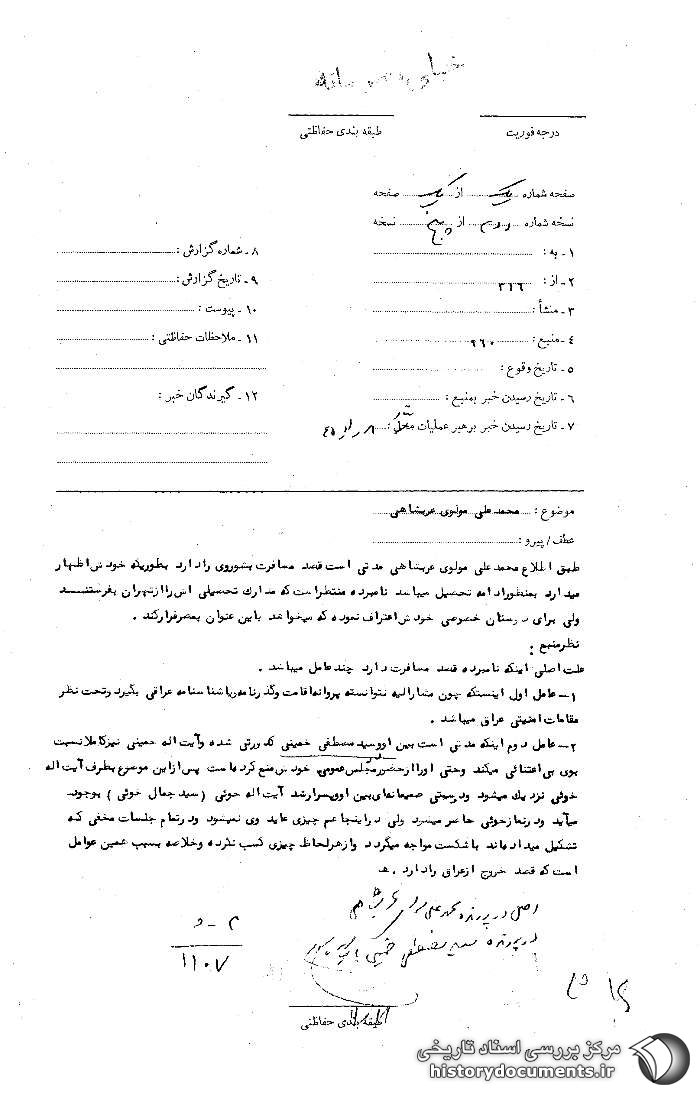 خیلی محرمانه
درجه فوریت
طبقه بندی حفاظتی
صفحه شماره یک از یک صفحه
نسخه شماره دوم از پنج نسخه
۱ - به :
۲ - از : ۳۱۶
۳ - منشأ :
۴ - منبع : ۹۶۰
۵ - تاریخ وقوع :
۶ - تاریخ رسیدن خبر بمنبع :
۷ - تاریخ رسیدن خبر برهبر عملیات محل :
۸ - شماره گزارش :
۹ - تاریخ گزارش :
۱۰ - پیوست :
۱۱ - ملاحظات حفاظتی :
۱۲ - گیرندگان خبر :
موضوع : محمد علی مولوی عربشاهی
عطف / پیرو :
طبق اطلاع محمد علی مولوی عربشاهی مدتی است قصد مسافرت بشوروی را دارد بطوریکه خودش اظهار
میدارد بمنظور ادامه تحصیل میباشد نامبرده منتظر است که مدارک تحصیلی اش را از تهران بفرستند
ولی برای دوستان خصوصی خودش اعتراف نموده که میخواهد باین عنوان بمصر فرار کند .
نظر منبع :
علت اصلی اینکه نامبرده قصد مسافرت دارد چند عامل میباشد .
۱ - عامل اول اینستکه چون مشارالیه نتوانسته پروانه اقامت و گذرنامه یا شناسنامه عراقی بگیرد و تحت نظر
مقامات امنیتی عراق میباشد .
۲ - عامل دوم اینکه مدتی است بین او و سید مصطفی خمینی کدورتی شده و آیت اله خمینی نیز کاملا نسبت
بوی بی اعتنائی میکند وحتی او را از حضور در مجلس عمومی خودش منع کرده است پس از این موضوع بطرف آیت اله
خوئی نزدیک میشود و دوستی صمیمانه ای بین او و پسر ارشد آیت اله خوئی ( سید جمال خوئی ) بوجود
میآید و در نماز خوئی حاضر میشود ولی در اینجا هم چیزی عاید وی نمیشود و در تمام جلسات مخفی که
تشکیل میداده اند با شکست مواجه میگردد و از هر لحاظ چیزی کسب نکرده و خلاصه بسبب همین عوامل
است که قصد خروج از عراق را دارد . ه
اصل در پرونده محمد علی مولوی عربشاهی
در پرونده سید مصطفی خمینی
۱۱۰۷
طبقه بندی حفاظتی
مرکز بررسی اسناد تاریخی
historydocuments.ir